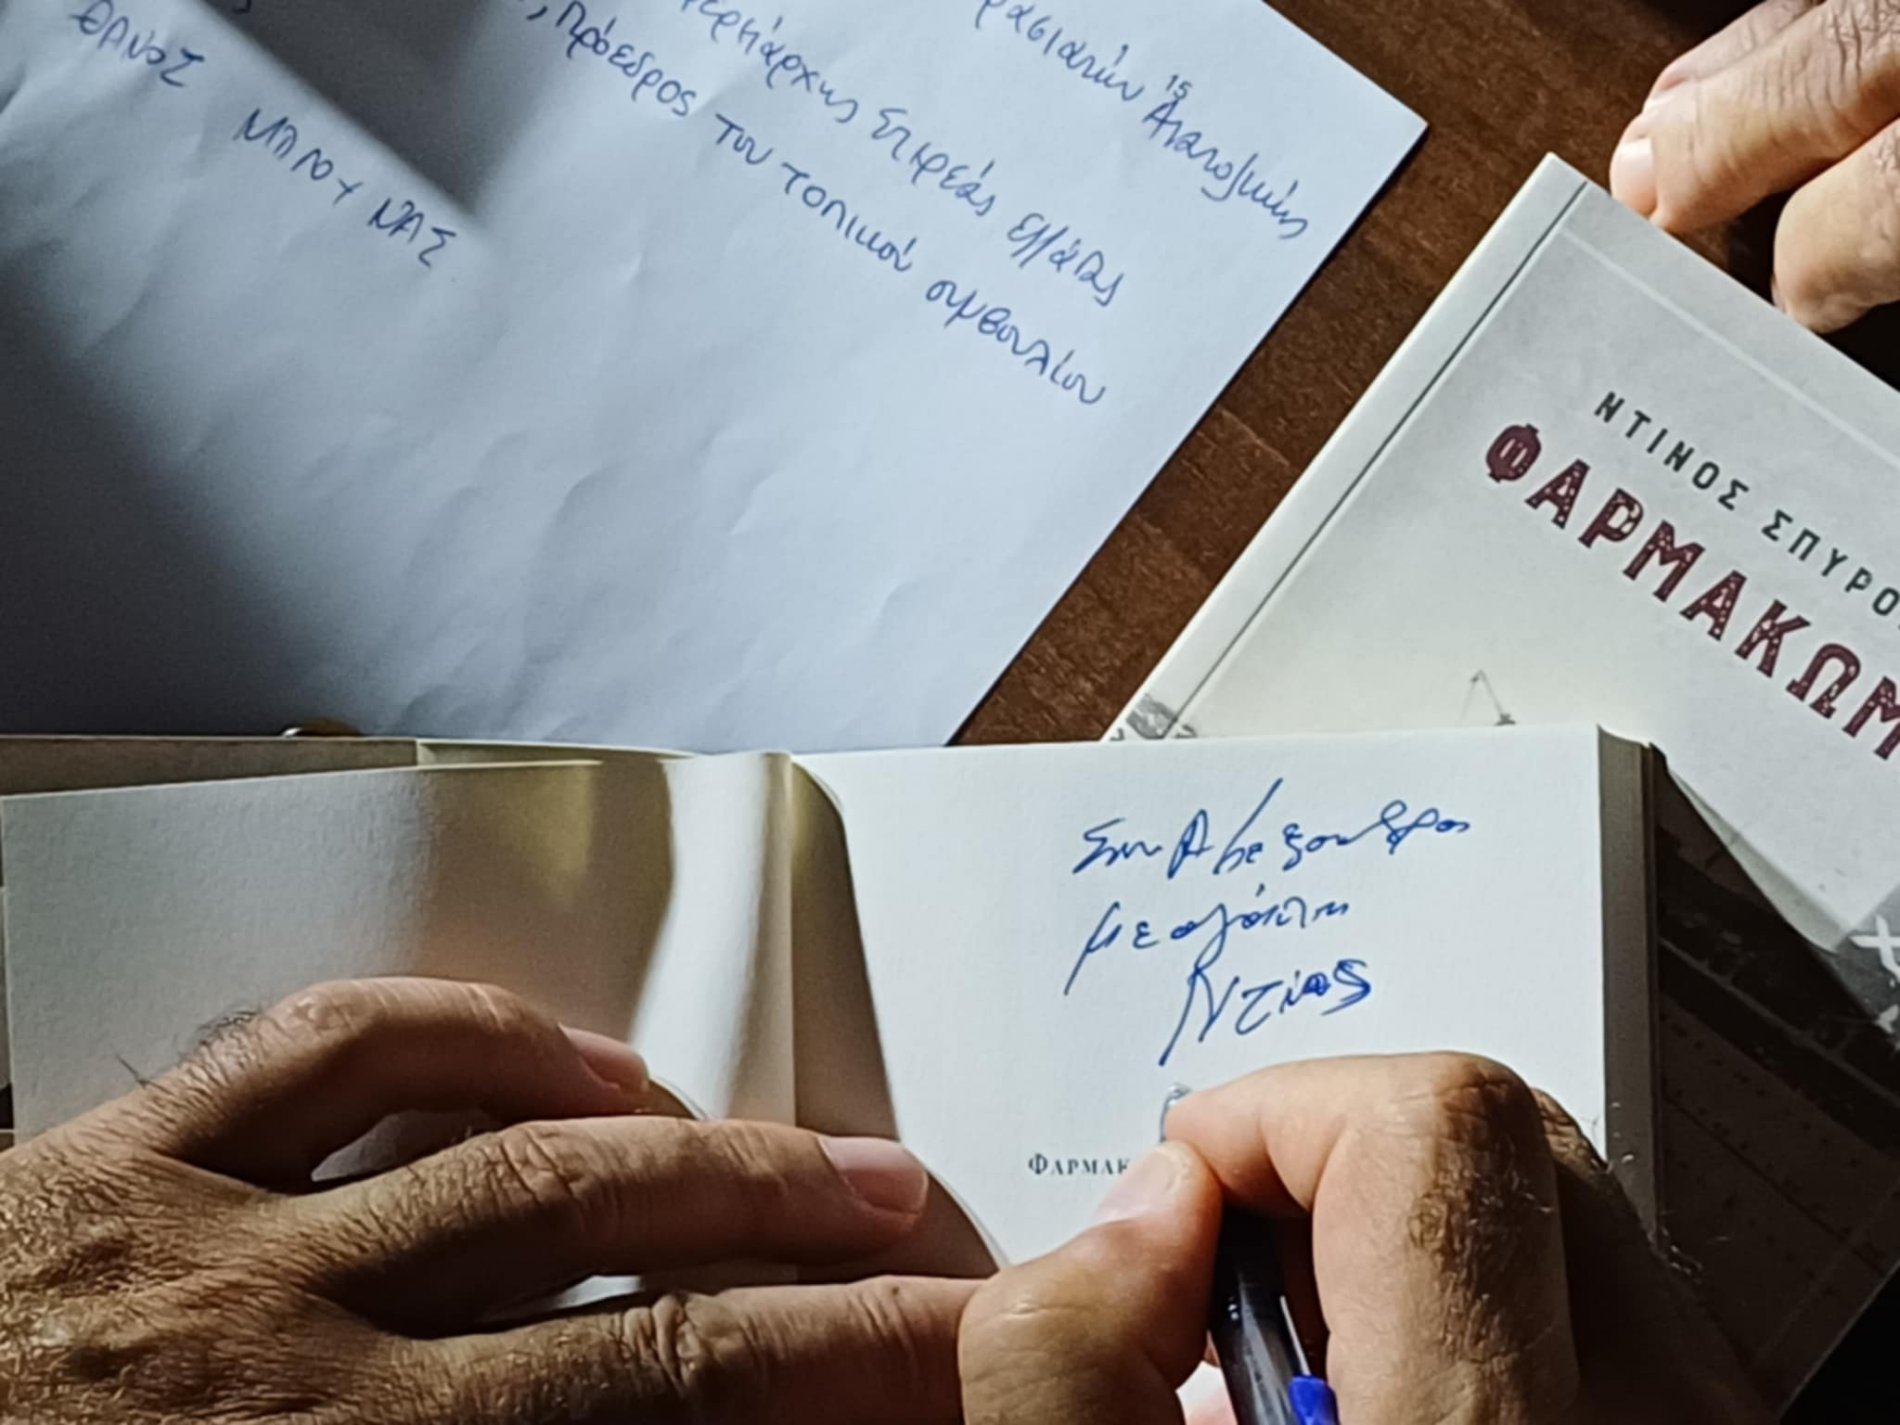 ρασιατών 15 Ανατολικής
φερειάρχης Στερεάς Ελλάδας
, Πρόεδρος του τοπικού συμβουλίου
ΘΑΝΟΣ ΜΠΛΟΥΝΑΣ
ΝΤΙΝΟΣ ΣΠΥΡΟ
ΦΑΡΜΑΚΩΜ
Στην Αλεξάνδρα
με αγάπη
Ντίνος
ΦΑΡΜΑΚ